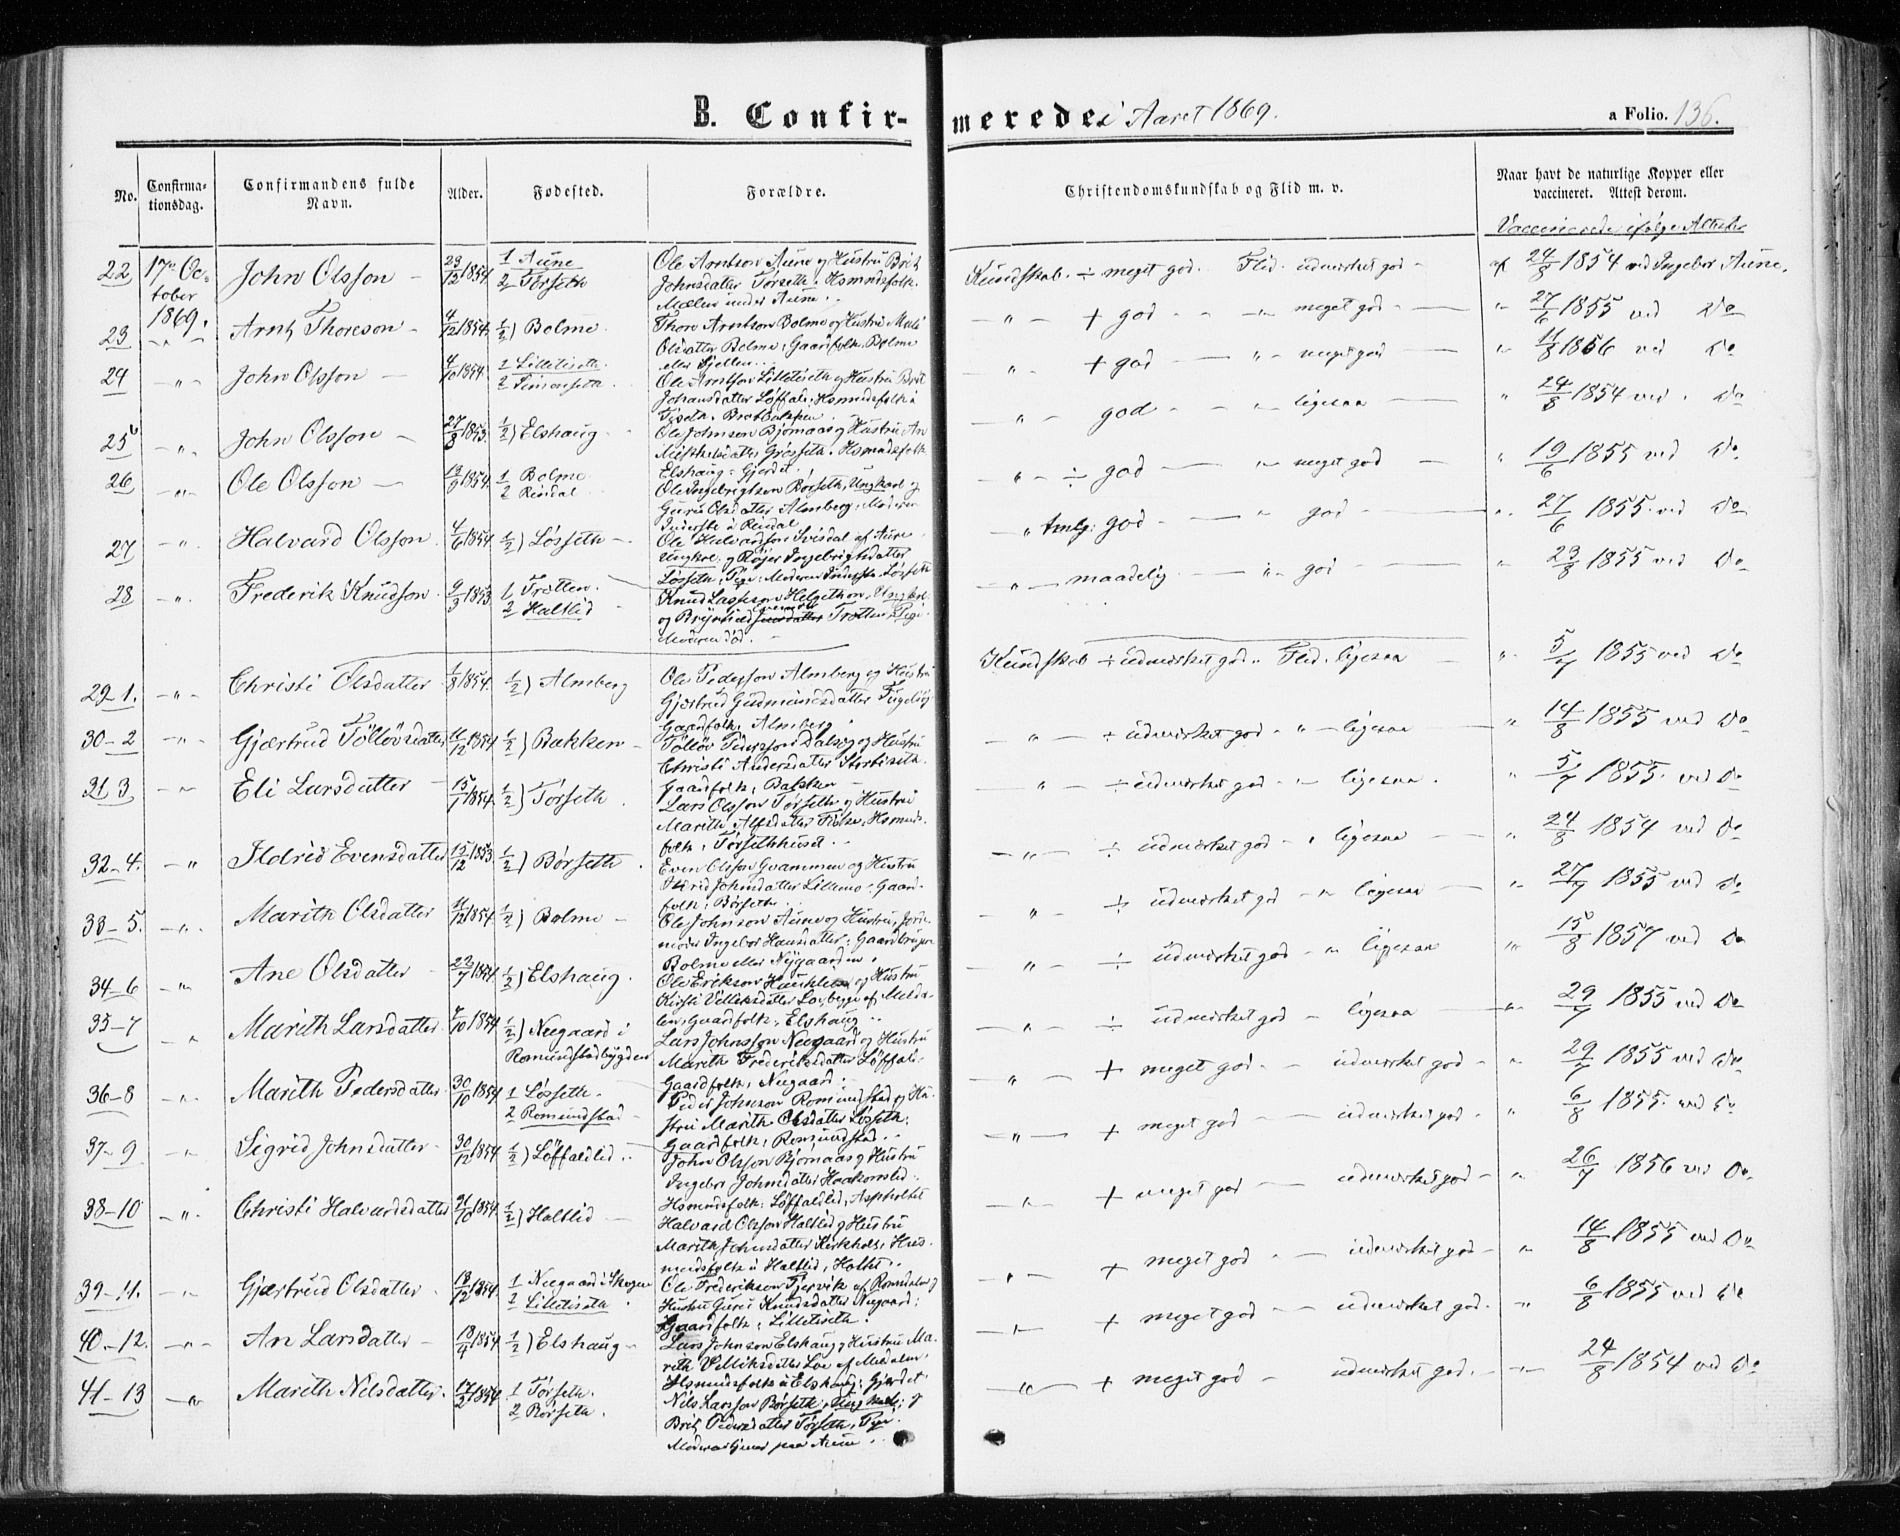 B. Confirmerede i Aaret 1869.
a Folio. 136.
No.
Confirmationsdag.
Confirmandens fulde Navn.
Alder.
Fødested.
Forældre.
Christendomskundskab og Flid m. v.
Naar havt de naturlige Kopper eller vaccineret. Attest derom.
Vaccinerede ifølge Attester
22 17de October 1869. John Olsson 23/12 1854. 1 Aune 2 Tørseth
Ole Arntson Aune og Hustru Brit
Johnsdatter Tørseth. Hsmndsfolk.
Mælen under Aune.
Kundskab. ÷ meget god. Flid. udmærket god af 24/8 1854 ved Ingebor Aune.
23 " Arnt Thoreson 4/12 1854. 1/2) Bolme
Thore Arntson Bolme og Hustru Mali
Olsdatter Bolme, Gaardfolk, Bolme
eller Hjellen.
" + god " meget god " 27/6 1855 ved Do
24 " John Olsson 4/10 1854. 1 Lilletiseth 2 Simonseth
Ole Arntson Lilletiseth og Hustru Brit
Johansdatter Løffald. Hsmndsfolk i
Tiseth. Bratbakken.
" + god " meget god " 11/8 1856 ved Do
25 " John Olsson 27/8 1853. 1/2) Elshaug
Ole Johnson Bjørnaas og Hustru An
Mikkelsdatter Grøsseth. Hsmndsfolk
Elshaug: Gjerdet.
" god " ligesaa " 24/8 1854 ved Do
26 " Ole Olsson 1854. 1 Bolme 2 Rindal
Ole Ingebrigtson Børseth, Ungkarl og
Guru Olsdatter Almberg, Moderen
Inderste i Rindal
" ÷ god " meget god " 19/6 1855 ved Do
27 " Halvard Olsson 4/6 1854. 1/2) Løsseth
Ole Halvardson Svisdal af Aure
Ungkre. og Røjer Ingebrigtsdatter
Løsseth, Pige. Moderen Inderste Løsseth
" tmlg: god " god " 27/6 1855 ved Do
28 " Frederik Knudson 9/3 1853. 1 Trøtten. 2 Haltlid
Knud Lasseson Helgethon, Ungkrl.
og Brynhild Trøtten, Pige.
Moderen død.
" maadelig " god " 23/8 1855 ved Do
29-1. " Christi Olsdatter 1/8 1854. 1/2) Almberg
Ole Pedersson Almberg og Hustru
Gjertrud Gudmundsdatter Fugelsøy
Gaardfolk, Almberg.
Kundskab ÷ udmærket god. Flid. ligesaa " 5/7 1855 ved Do
30-2 " Gjærtrud Tølløvsdatter 11/12 1854 1/2) Bakken
Tølløv Pedersson Dalsey og Hustru
Christi Andersdatter Stortiseth.
Gaardfolk, Bakken
" ÷ udmærket god " ligesaa " 14/8 1855 ved Do
31 3 " Eli Larsdatter 15/1 1854. 1/2) Tørseth
Lars Olsson Tørseth og Hustru
Marith Alfsdatter Fiske, Hsmnds-
folk, Tørsethhuset.
" ÷ udmærket god " ligesaa " 5/7 1855. ved Do
32-4. " Ildrid Evensdatter 15/12 1853. 1/2) Børseth
Even Olsson Gvammen og Hustru
Ildrid Johnsdatter Lillemo, Gaard-
folk, Børseth.
" ÷ udmærket god " ligesaa " 24/8 1854 ved Do
33-5. " Marith Olsdatter 4/12 1854. 1/2) Bolme
Ole Johnson Aune og Hustru, Jorde-
moder Ingebor Hansdatter, Gaardbruger
Bolme eller Nygaarden.
" ÷ udmærket god " ligesaa " 27/7 1855 ved Do
34-6 " Ane Olsdatter 23/7 1854. 1/2) Elshaug.
Ole Erikson og Hustru
Kirsti Villiksdatter Lo, begge af Melda-
len, Gaardfolk, Elshaug
" ÷ udmærket god " ligesaa " 15/8 1857 ved Do
35-7 " Marith Larsdatter 7/10 1854. 1/2) Neegaard i Romundstadbygden
Lars Johnsson Neegaard og Hustru
Marith Frederiksdatter Løffald.
Gaardfolk, Neegaard.
" ÷ udmærket god ligesaa " 29/7 1855 ved Do
36-8 " Marith Pedersdatter 30/10 1854 1 Løsseth. 2 Romundstad
Peder Johnson Romundstad og Hu-
stru Marith Olsdatter Løsseth.
Gaardfolk, Romundstad.
" + meget god udmærket god " 29/7 1855 ved Do
37-9 " Sigrid Johnsdatter 30/12 1854 1/2) Løffaldlid
John Olsson Bjørnaas og Hustru
Ingebor Johnsdatter Haakonslid.
Hsmndsfolk: Løffaldlid, Aspholtet
" + meget god udmærket god " 6/8 1855. ved Do
38-10 " Christi Halvardsdatter 21/10 1854. 1/2) Haltlid
Halvard Olsson Haltlid og Hustru
Marith Johnsdatter Kirkholt, Hus-
mandsfolk i Haltlid, Holtet.
" + meget god udmærket god " 26/7 1856 ved Do
39-11. " Gjærtrud Olsdatter 18/12 1854. 1 Neegaard i Skogen 2 Lilletiseth
Ole Frederikson Tjersvik af Romsdalen og
Hustru Guru Knudsdatter Neegaard;
Gaardfolk; Lilletiseth.
" + meget god udmærket god " 14/8 1855 ved Do
40-12. " An Larsdatter 18/4 1854 1/2) Elshaug
Lars Johnson Elshaug og Hustru Ma-
rith Villiksdatter Loe af Meldalen,
Hsmndsfolk i Elshaug; Gjerdet.
" + meget god udmærket god. " 6/8 1855 ved Do
41-13 " Marith Nilsdatter. 17/2 1854. 1 Tørseth. 2 Børseth.
Nils Larsson Børseth, Ungkarl; og
Brit Pedersdatter Tørseth, Pige.
Moderen tjener paa Aune.
" + meget god udmærket god. " 24/8 1854 ved Do